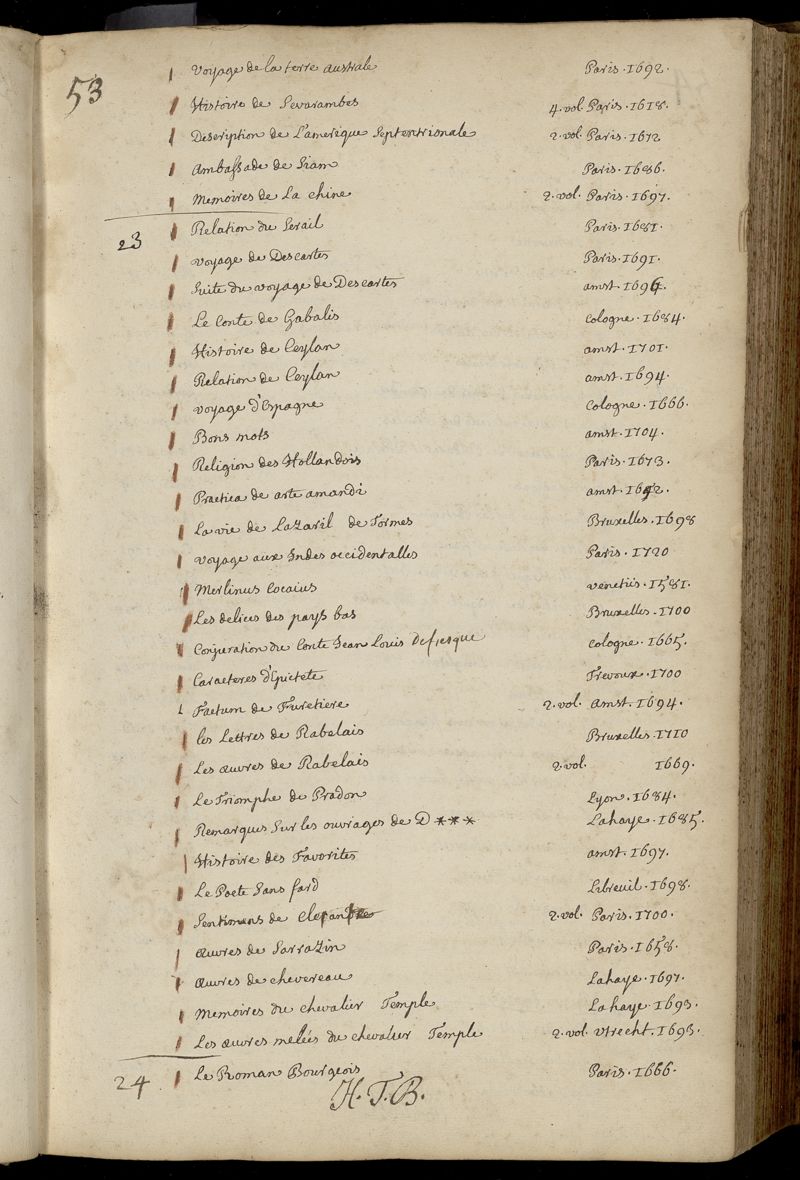 53
Voyage de la terre australe Paris. 1692.
Histoire de Sevarambes 4. vol Paris. 1618.
Description de L'amerique Septentrionale 2. vol. Paris. 1672
Ambassade de Siam Paris. 1686.
Memoires de La chine 2. vol. Paris. 1697.
23 Relation du Serail Paris. 1681.
voyage de Descartes Paris. 1691.
Suite du voyage de Descartes amst. 1696.
Le Conte de Gabalis Cologne. 1684.
Histoire de Ceylan amst. 1701.
Relation de Ceylan amst. 1694.
voyage d'Espagne Cologne. 1666.
Bons mots amst. 1704.
Religion des Hollandois Paris. 1673.
Practica de arte amandi amst.
La vie de Lazaril de Tormes Bruxelles. 1698
voyage aux Indes occidentalles Paris. 1720
Merlinus Cocaius venetiis. 1581.
Les delices des pays bas Bruxelles. 1700
Conjuration du Conte Jean Louis Defiesque Cologne. 1665.
Caracteres d'Epictete Trevoux. 1700
Factum de Furetiere 2. vol. amst. 1694.
les Lettres de Rabelais Bruxelles. 1710
Les œuvres de Rabelais 2. vol. 1669.
Le Triomphe de Pradon Lyon. 1684.
Remarques Sur les ouvrages de D *** Lahaye. 1685.
Histoire des Favorites amst. 1697.
Le Poete Sans fard Libreuil. 1698.
Sentimens de 2. vol. Paris. 1700.
œuvres de Sarrazin Paris. 1658.
œuvres de chevereau Lahaye. 1697.
Memoires du chevalier Temple La haye. 1693.
Les œuvres melées du chevalier Temple 2. vol. Vtrecht. 1693.
24 Le Roman Bourgeois Paris. 1666.
H. T. B.